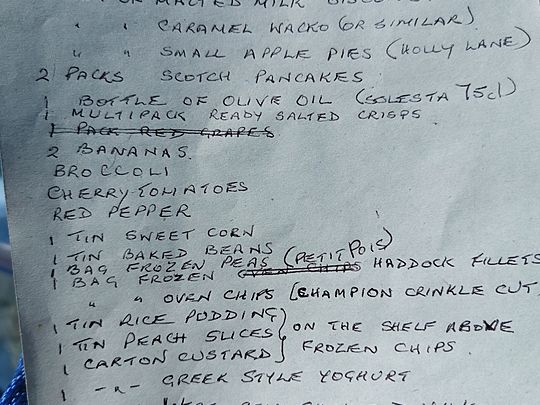 OR MALTED MILK
" " CARAMEL WACKO (OR SIMILAR)
" " SMALL APPLE PIES (HOLLY LANE)
2 PACKS SCOTCH PANCAKES
1 BOTTLE OF OLIVE OIL (SOLESTA 75cl)
1 MULTIPACK READY SALTED CRISPS
1 PACK RED GRAPES
2 BANANAS.
BROCCOLI
CHERRY TOMATOES
RED PEPPER
1 TIN SWEET CORN
1 TIN BAKED BEANS
1 BAG FROZEN PEAS (PETIT POIS)
1 BAG FROZEN OVEN CHIPS HADDOCK FILLETS
" " OVEN CHIPS [CHAMPION CRINKLE CUT
1 TIN RICE PUDDING
1 TIN PEACH SLICES } ON THE SHELF ABOVE
1 CARTON CUSTARD } FROZEN CHIPS.
1 -"- GREEK STYLE YOGHURT